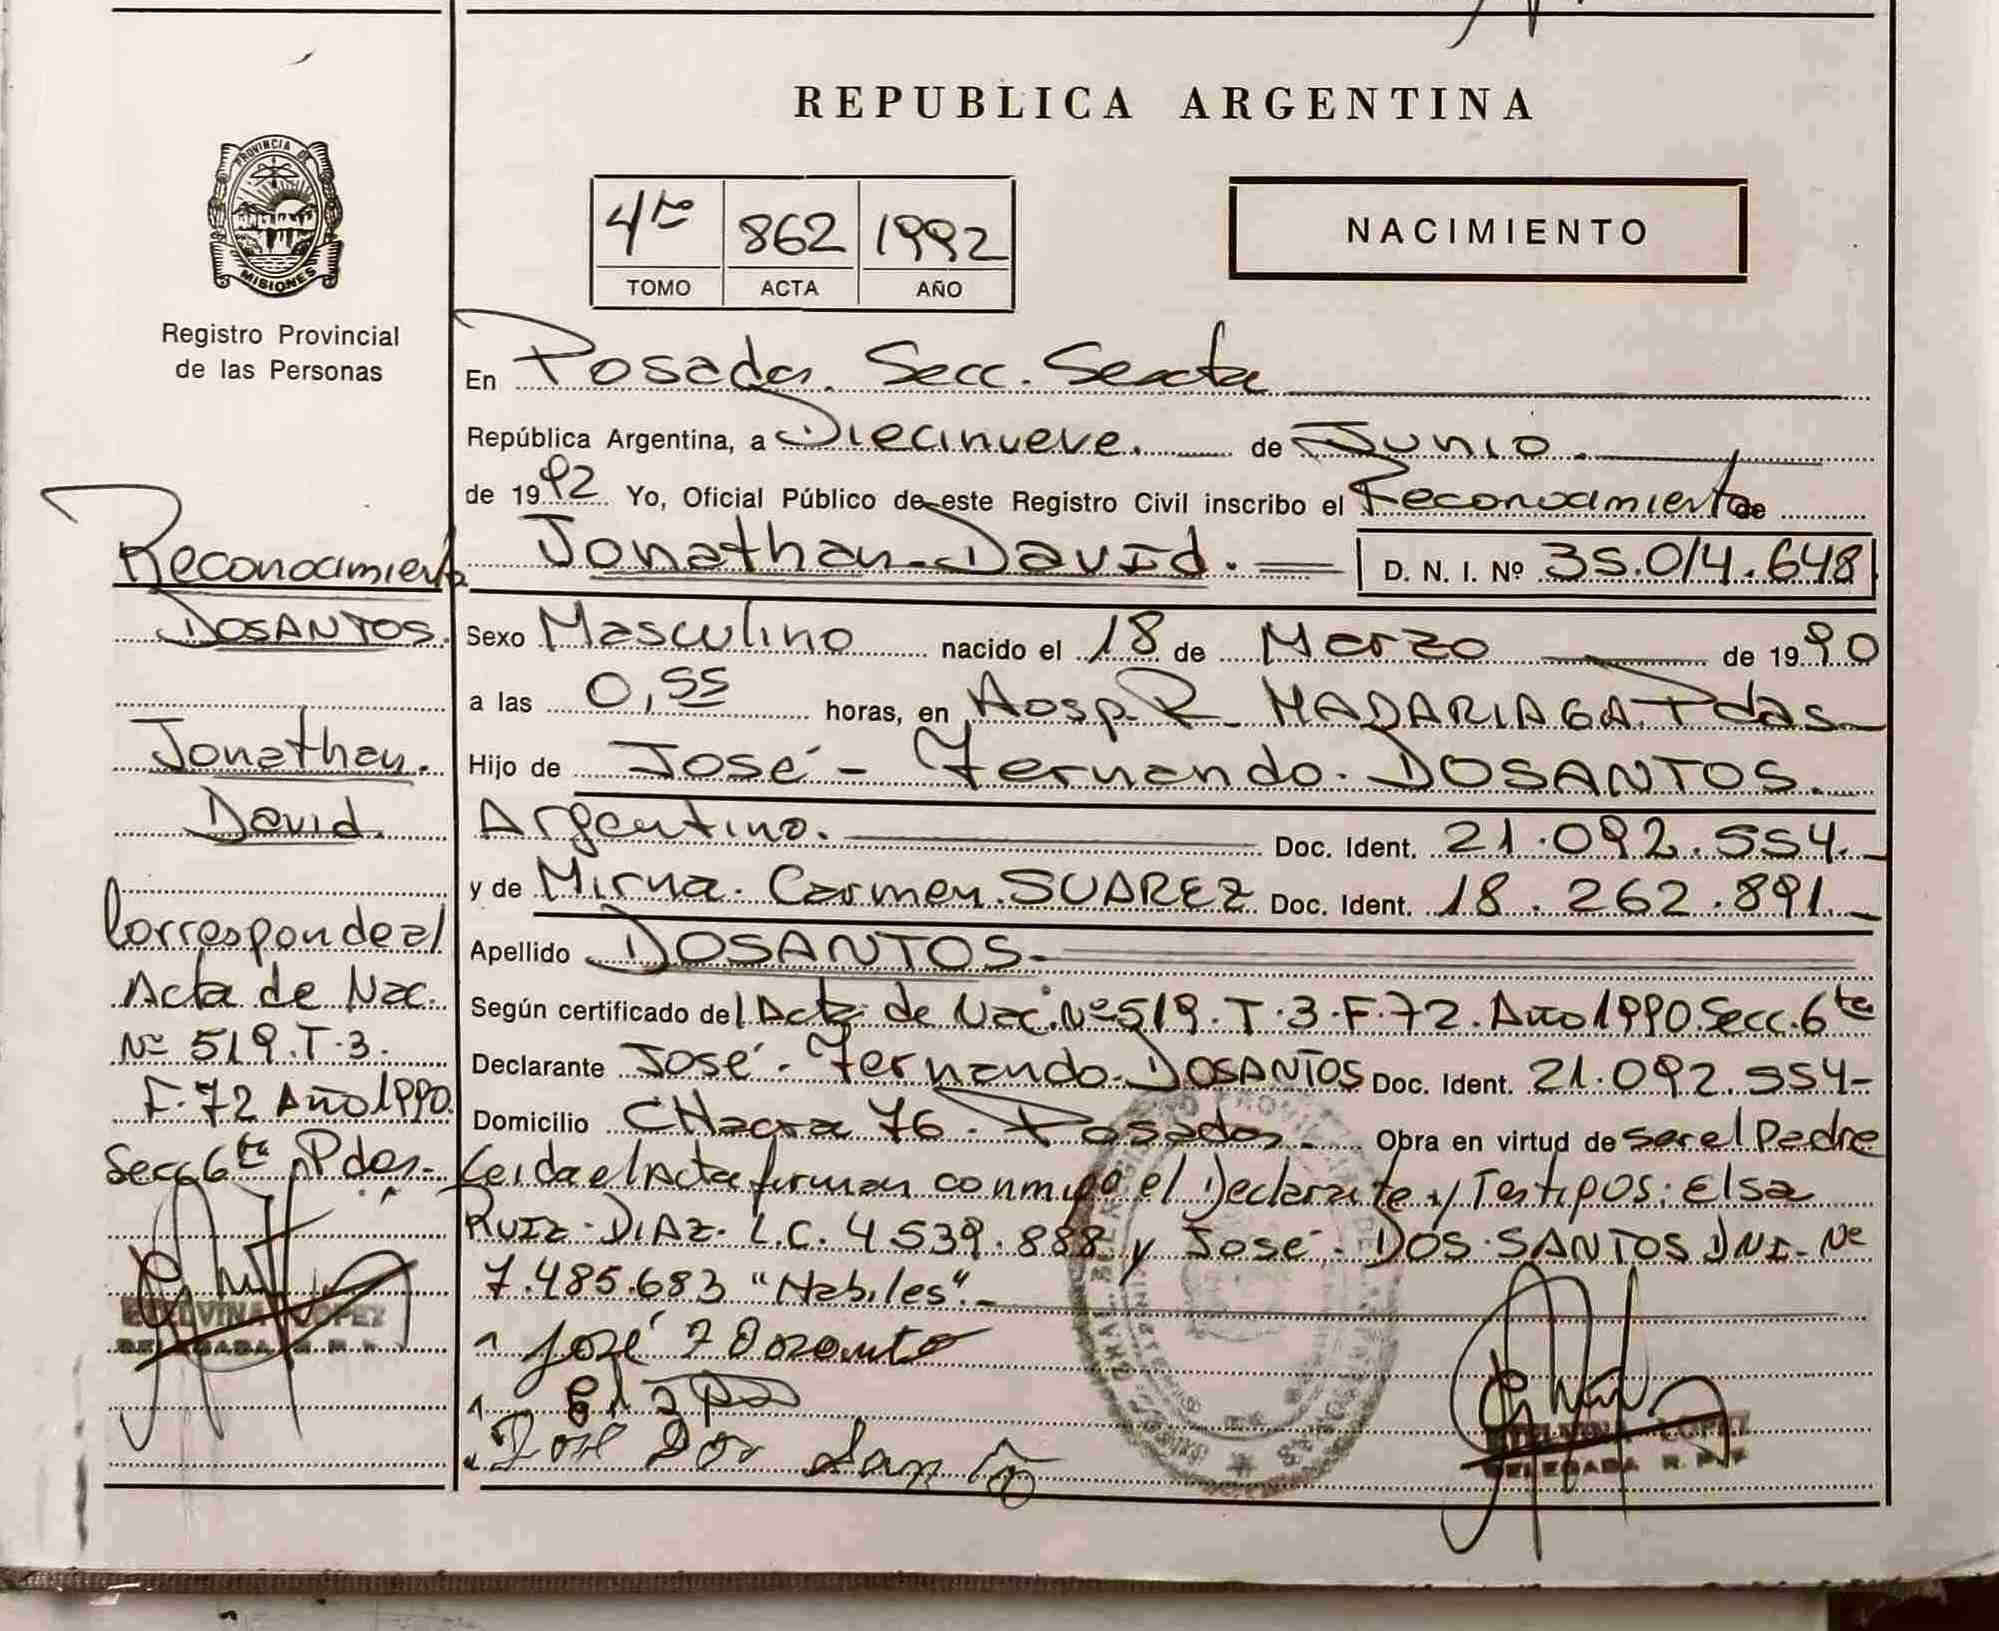 REPUBLICA ARGENTINA
PROVINCIA DE
MISIONES
Registro Provincial
de las Personas
4to 862 1992
TOMO ACTA AÑO
NACIMIENTO
En Posadas. Secc. Sexta
República Argentina, a Diecinueve. de Junio.
de 1992 Yo, Oficial Público de este Registro Civil inscribo el Reconocimiento de
Jonathan David. D. N. I. Nº 35.014.648
Sexo Masculino nacido el 18 de Marzo de 1990
a las 0,55 horas, en Hosp. R. MADARIAGA. Pdas
Hijo de José - Fernando. DOSANTOS.
Argentino. Doc. Ident. 21.092.554.
y de Mirna. Carmen. SUAREZ Doc. Ident. 18.262.891.
Apellido DOSANTOS.
Según certificado del Acta de Nac. Nº 519. T. 3. F. 72. Año 1990. Secc. 6ta
Declarante José - Fernando. DOSANTOS Doc. Ident. 21.092.554
Domicilio CHacra 76. Posadas. Obra en virtud de ser el Padre
Leida el Acta firman conmigo el Declarante y Testigos: Elsa
RUIZ - DIAZ. L.C. 4.539.888 y José. DOS SANTOS DNI. Nº
7.485.683 "Habiles".
Reconocimiento
DOSANTOS.
Jonathan.
David.
Corresponde al
Acta de Nac.
Nº 519. T. 3.
F. 72 Año 1990.
Secc. 6ta Pdas.
LOPEZ
DELEGADA R. P. P.
José F Dosanto
José Dos Santo
LOPEZ
DELEGADA R. P. P.